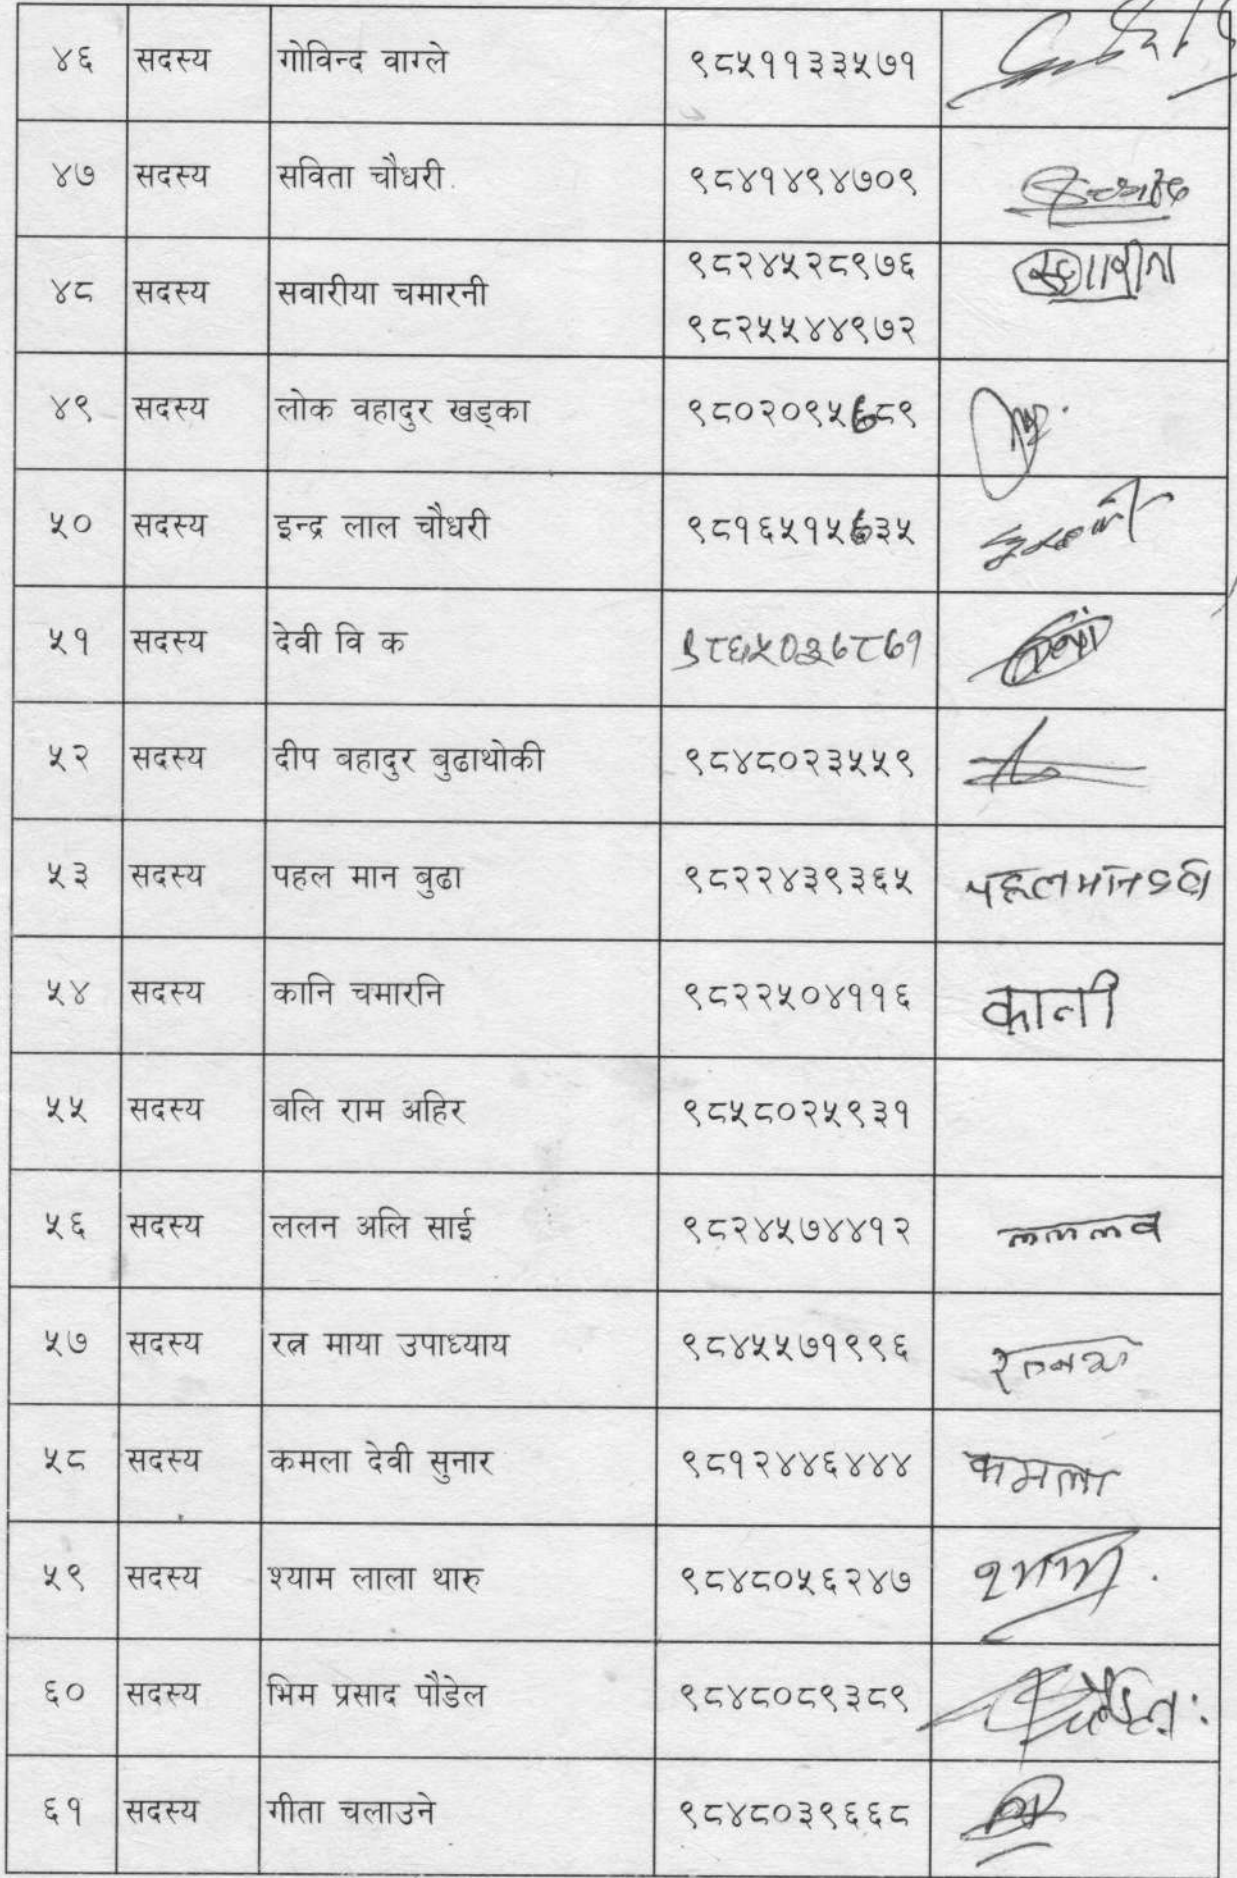 ४६ सदस्य गोविन्द वाग्ले ९८५११३३५७१
४७ सदस्य सविता चौधरी ९८४१४९४७०९
४८ सदस्य सवारीया चमारनी ९८२४५२८९७६
९८२५५४४९७२
४९ सदस्य लोक वहादुर खड्का ९८०२०९५६८९
५० सदस्य इन्द्र लाल चौधरी ९८१६५१५६३५
५१ सदस्य देवी वि क
५२ सदस्य दीप बहादुर बुढाथोकी ९८४८०२३५५९
५३ सदस्य पहल मान बुढा ९८२२४३९३६५ पहलमान
५४ सदस्य कानि चमारनि ९८२२५०४११६ कानी
५५ सदस्य बलि राम अहिर ९८५८०२५९३१
५६ सदस्य ललन अलि साई ९८२४५७४४१२
५७ सदस्य रत्न माया उपाध्याय ९८४५५७१९९६
५८ सदस्य कमला देवी सुनार ९८१२४४६४४४ कमला
५९ सदस्य श्याम लाला थारु ९८४८०५६२४७
६० सदस्य भिम प्रसाद पौडेल ९८४८०८९३८९
६१ सदस्य गीता चलाउने ९८४८०३९६६८